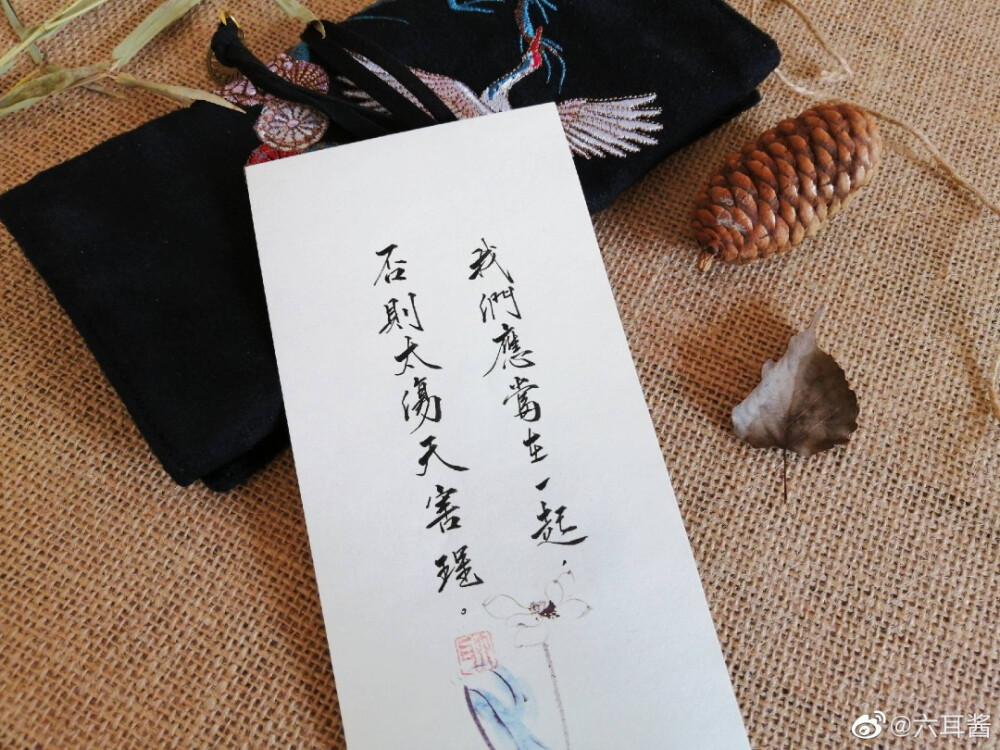 我們應當在一起，
否則太傷天害理。
@六耳酱